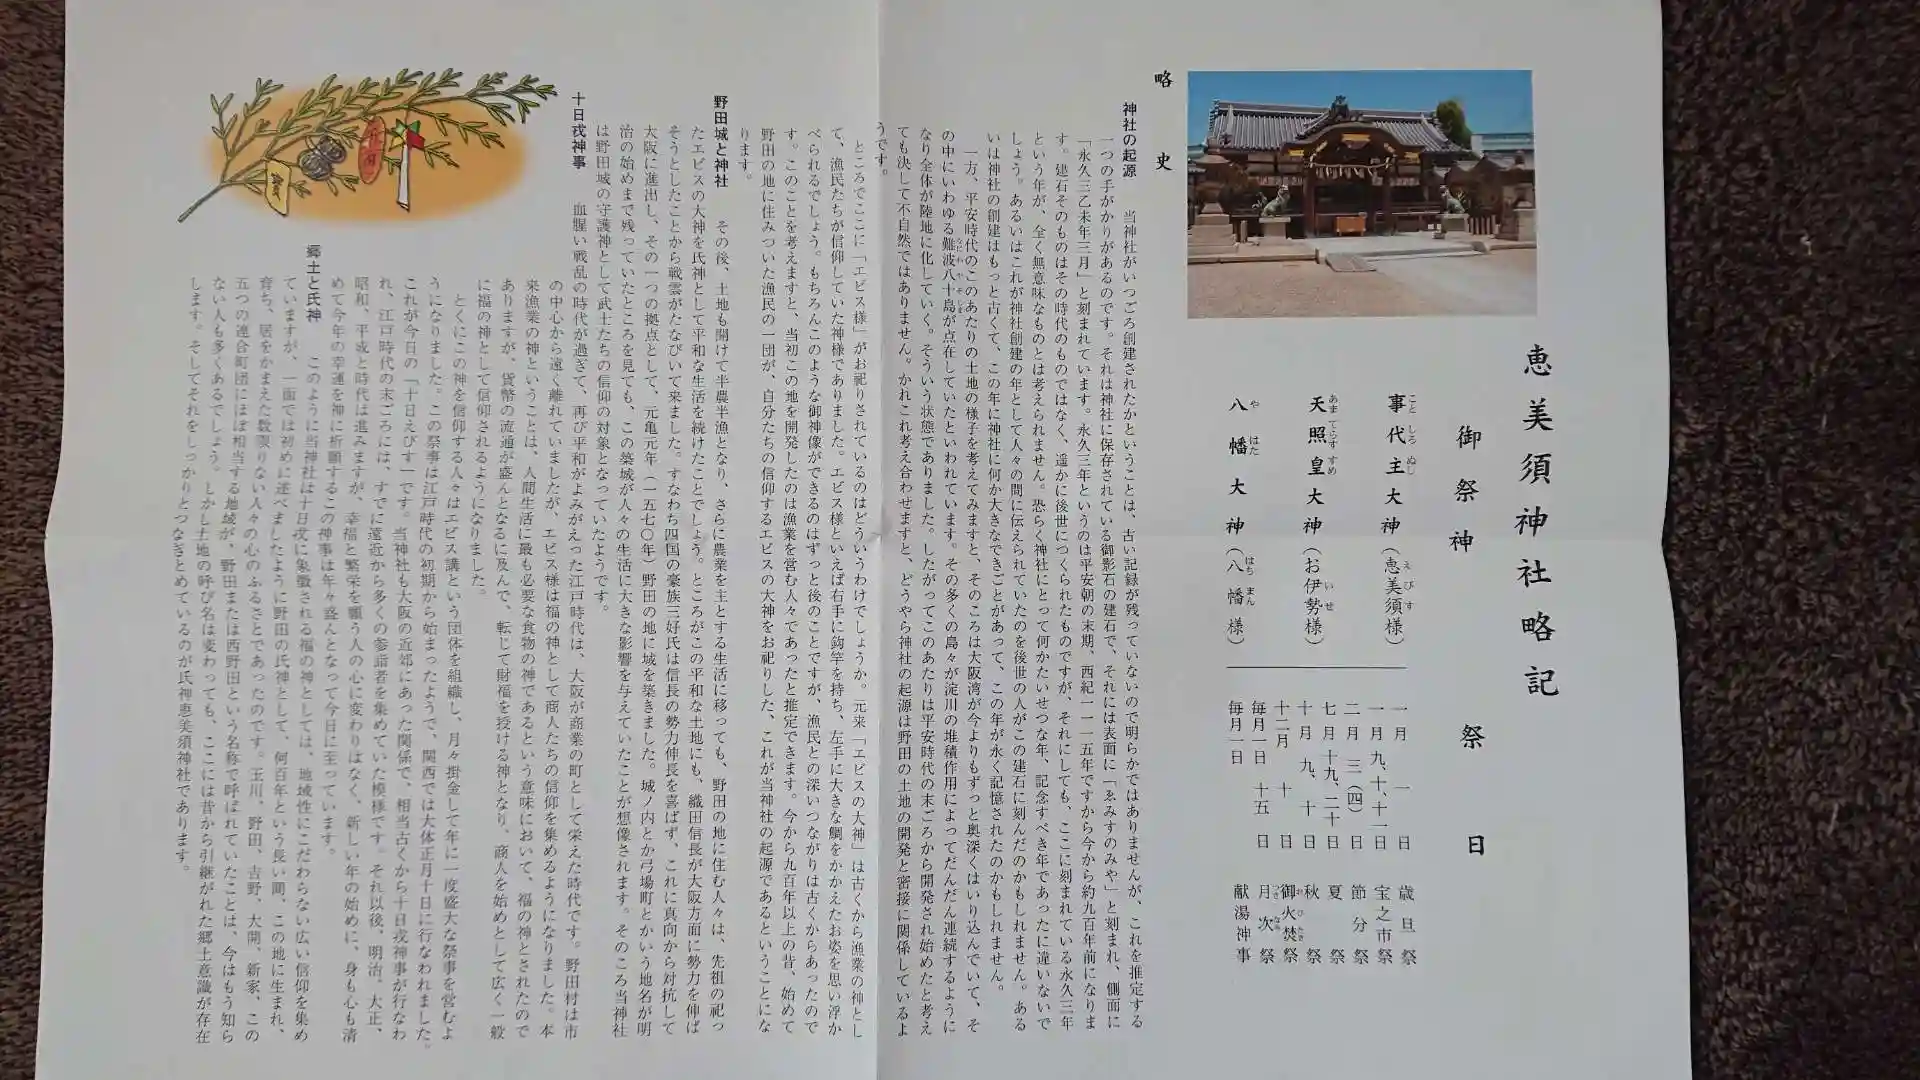 恵美須神社略記
御祭神
事代主大神（恵美須様）
天照皇大神（お伊勢様）
八幡大神（八幡様）
祭日
一月 一日 歳旦祭
一月 九、十、十一日 宝之市祭
二月 三（四）日 節分祭
七月 十九、二十日 夏祭
十月 九、十日 秋祭
十二月 十日 御火焚祭
毎月一日 十五日 月次祭
毎月一日 献湯神事
略史
神社の起源 当神社がいつごろ創建されたかということは、古い記録が残っていないので明らかではありませんが、これを推定する
一つの手がかりがあるのです。それは神社に保存されている御影石の建石で、それには表面に「ゑみすのみや」と刻まれ、側面に
「永久三乙未年三月」と刻まれています。永久三年というのは平安朝の末期、西紀一一一五年ですから今から約九百年前になりま
す。建石そのものはその時代のものではなく、遥かに後世につくられたものですが、それにしても、ここに刻まれている永久三年
という年が、全く無意味なものとは考えられません。恐らく神社にとって何かたいせつな年、記念すべき年であったに違いないで
しょう。あるいはこれが神社創建の年として人々の間に伝えられていたのを後世の人がこの建石に刻んだのかもしれません。ある
いは神社の創建はもっと古くて、この年に神社に何か大きなできごとがあって、この年が永く記憶されたのかもしれません。
一方、平安時代のこのあたりの土地の様子を考えてみますと、そのころは大阪湾が今よりもずっと奥深くはいり込んでいて、そ
の中にいわゆる難波八十島が点在していたといわれています。その多くの島々が淀川の堆積作用によってだんだん連続するように
なり全体が陸地に化していく。そういう状態でありました。したがってこのあたりは平安時代の末ごろから開発され始めたと考え
ても決して不自然ではありません。かれこれ考え合わせますと、どうやら神社の起源は野田の土地の開発と密接に関係しているよ
うです。
ところでここに「エビス様」がお祀りされているのはどういうわけでしょうか。元来「エビスの大神」は古くから漁業の神とし
て、漁民たちが信仰していた神様でありました。エビス様といえば右手に釣竿を持ち、左手に大きな鯛をかかえたお姿を思い浮か
べられるでしょう。もちろんこのような御神像ができるのはずっと後のことですが、漁民との深いつながりは古くからあったので
す。このことを考えますと、当初この地を開発したのは漁業を営む人々であったと推定できます。今から九百年以上の昔、始めて
野田の地に住みついた漁民の一団が、自分たちの信仰するエビスの大神をお祀りした、これが当神社の起源であるということにな
ります。
野田城と神社 その後、土地も開けて半農半漁となり、さらに農業を主とする生活に移っても、野田の地に住む人々は、先祖の祀っ
たエビスの大神を氏神として平和な生活を続けたことでしょう。ところがこの平和な土地にも、織田信長が大阪方面に勢力を伸ば
そうとしたことから戦雲がたなびいて来ました。すなわち四国の豪族三好氏は信長の勢力伸長を喜ばず、これに真向から対抗して
大阪に進出し、その一つの拠点として、元亀元年（一五七〇年）野田の地に城を築きました。城ノ内とか弓場町とかいう地名が明
治の始めまで残っていたところを見ても、この築城が人々の生活に大きな影響を与えていたことが想像されます。そのころ当神社
は野田城の守護神として武士たちの信仰の対象となっていたようです。
十日戎神事 血腥い戦乱の時代が過ぎて、再び平和がよみがえった江戸時代は、大阪が商業の町として栄えた時代です。野田村は市
の中心から遠く離れていましたが、エビス様は福の神として商人たちの信仰を集めるようになりました。本
来漁業の神ということは、人間生活に最も必要な食物の神であるという意味において、福の神とされたので
ありますが、貨幣の流通が盛んとなるに及んで、転じて財福を授ける神となり、商人を始めとして広く一般
に福の神として信仰されるようになりました。
とくにこの神を信仰する人々はエビス講という団体を組織し、月々掛金して年に一度盛大な祭事を営むよ
うになりました。この祭事は江戸時代の初期から始まったようで、関西では大体正月十日に行なわれました。
これが今日の「十日えびす」です。当神社も大阪の近郊にあった関係で、相当古くから十日戎神事が行なわ
れ、江戸時代の末ごろには、すでに遠近から多くの参詣者を集めていた模様です。それ以後、明治、大正、
昭和、平成と時代は進みますが、幸福と繁栄を願う人の心に変わりはなく、新しい年の始めに、身も心も清
めて今年の幸運を神に祈願するこの神事は年々盛んとなって今日に至っています。
郷土と氏神 このように当神社は十日戎に象徴される福の神としては、地域性にこだわらない広い信仰を集め
ていますが、一面では初めに述べましたように野田の氏神として、何百年という長い間、この地に生まれ、
育ち、居をかまえた数限りない人々の心のふるさとであったのです。玉川、野田、吉野、大開、新家、この
五つの連合町団にほぼ相当する地域が、野田または西野田という名称で呼ばれていたことは、今はもう知ら
ない人も多くあるでしょう。しかし土地の呼び名は変わっても、ここには昔から引継がれた郷土意識が存在
します。そしてそれをしっかりとつなぎとめているのが氏神恵美須神社であります。